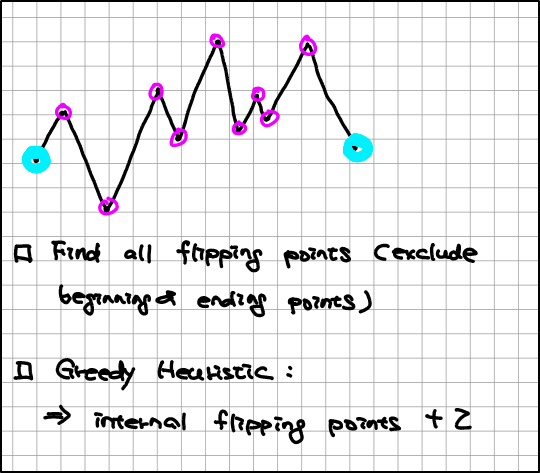 □ Find all flipping points (exclude
beginning & ending points)
□ Greedy Heuristic :
⇒ internal flipping points + 2